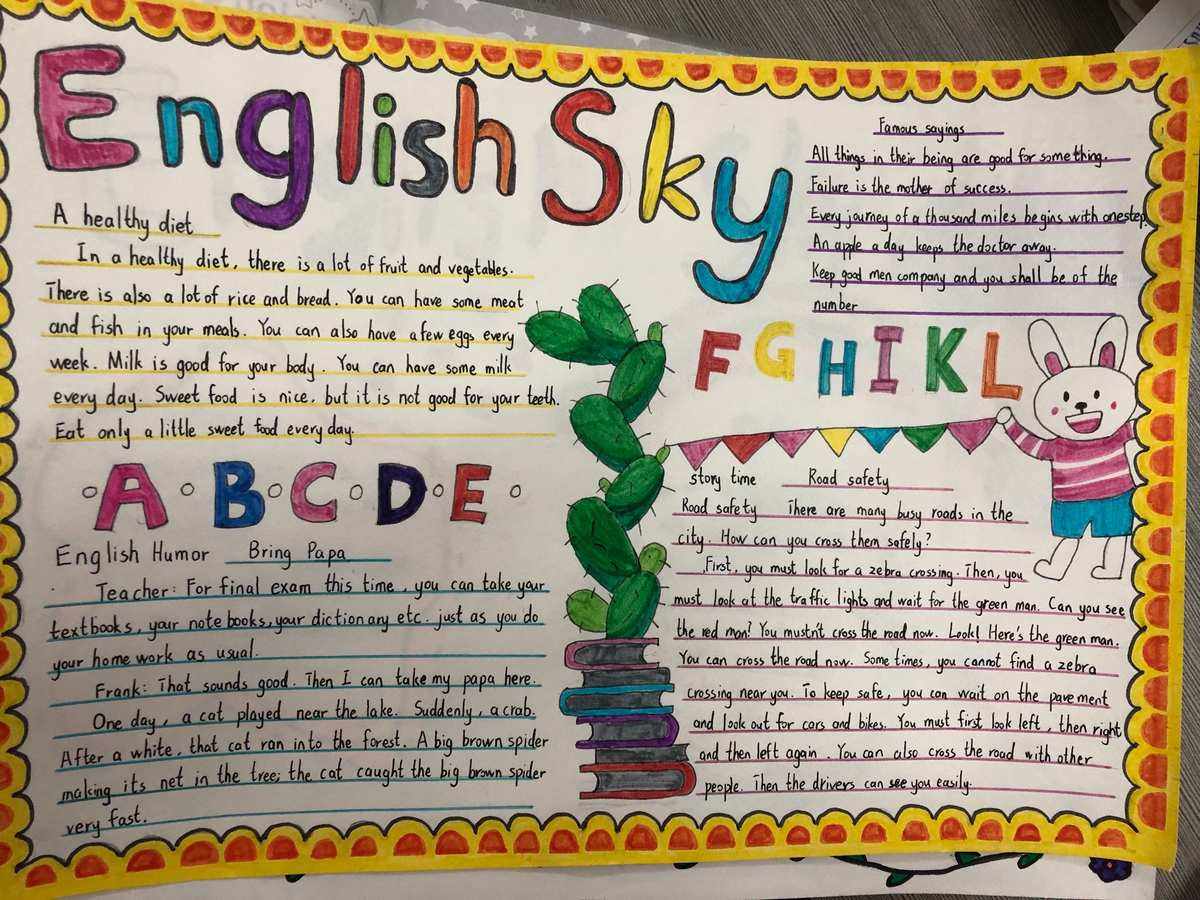 English Sky
A healthy diet
In a healthy diet, there is a lot of fruit and vegetables.
There is also a lot of rice and bread. You can have some meat
and fish in your meals. You can also have a few eggs every
week. Milk is good for your body. You can have some milk
every day. Sweet food is nice, but it is not good for your teeth.
Eat only a little sweet food every day.
A B C D E
English Humor Bring Papa
Teacher: For final exam this time, you can take your
textbooks, your note books, your dictionary etc. just as you do
your home work as usual.
Frank: That sounds good. Then I can take my papa here.
One day, a cat played near the lake. Suddenly, a crab.
After a white, that cat ran into the forest. A big brown spider
making its net in the tree; the cat caught the big brown spider
very fast.
Famous sayings
All things in their being are good for something.
Failure is the mother of success.
Every journey of a thousand miles begins with one step.
An apple a day keeps the doctor away.
Keep good men company and you shall be of the
number
F G H I K L
story time Road safety
Road safety There are many busy roads in the
city. How can you cross them safely?
First, you must look for a zebra crossing. Then, you
must look at the traffic lights and wait for the green man. Can you see
the red man? You mustn't cross the road now. Look! Here's the green man.
You can cross the road now. Some times, you cannot find a zebra
crossing near you. To keep safe, you can wait on the pavement
and look out for cars and bikes. You must first look left, then right
and then left again. You can also cross the road with other
people. Then the drivers can see you easily.